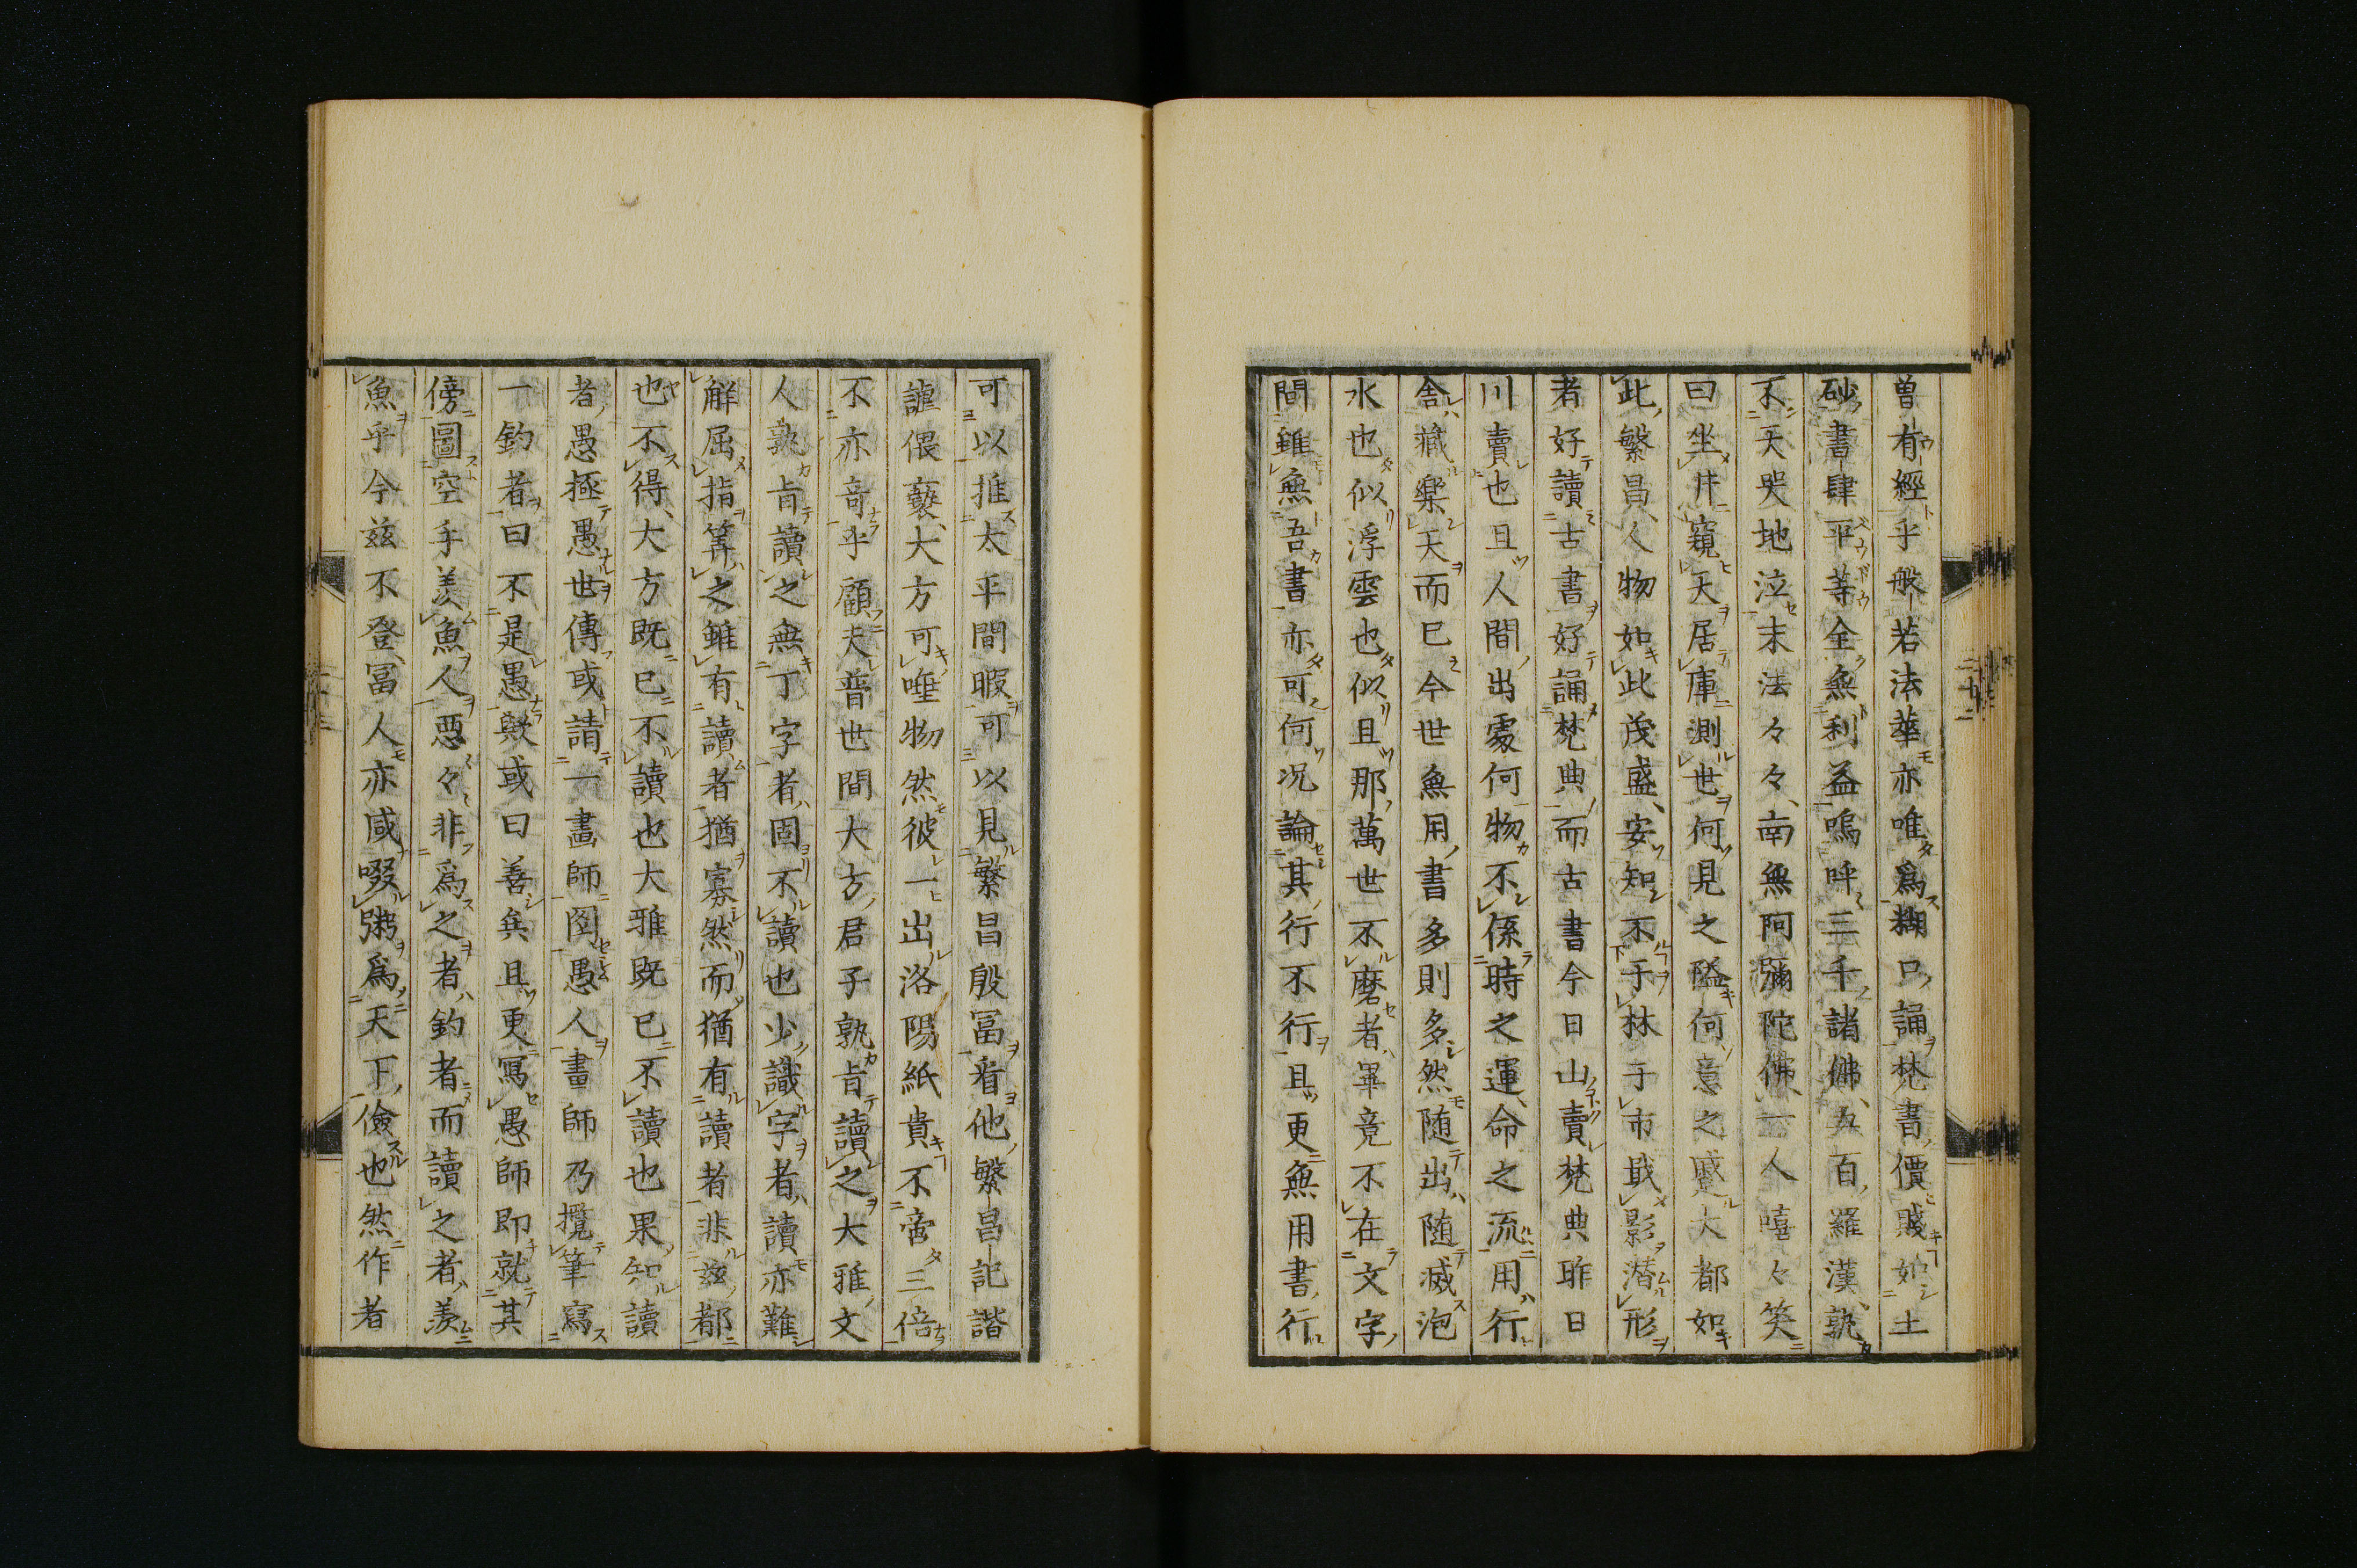 曽有經乎般若法華亦唯爲糊口誦梵書價賤如土
砂書肆平等全無利益嗚呼三千諸佛五百羅漢孰
不天哭地泣末法々々南無阿彌陀佛一人嘻々笑
曰坐井窺天居庫測世何見之隘何意之蹙大都如
此繁昌人物如此茂盛安知不于林于市戢影潜形
者好讀古書好誦梵典而古書今日山賣梵典昨日
川賣也且人間出處何物不係時之運命之流用行
舎藏樂天而已今世無用書多則多然随出随滅泡
水也似浮雲也似且那萬世不磨者畢竟不在文字
間雖無吾書亦可何况論其行不行且更無用書行
可以推太平間暇可以見繁昌殷冨看他繁昌記諧
謔偎褻大方可唾物然彼一出洛陽紙貴不啻三倍
不亦竒乎顧夫普世間大方君子孰肯讀之大雅文
人孰肯讀之無丁字者固不讀也少識字者讀亦難
觧屈指筭之雖有讀者猶寡然而猶有讀者非玆都
也不得大方既已不讀也大雅既已不讀也果知讀
者愚極愚世傳或請一畵師圖愚人畵師乃攬筆寫
一釣者曰不是愚歟或曰善矣且更寫愚師即就其
傍圖空手羨魚人惡々非爲之者釣者而讀之者羨
魚乎今玆不登冨人亦咸啜粥爲天下儉也然作者